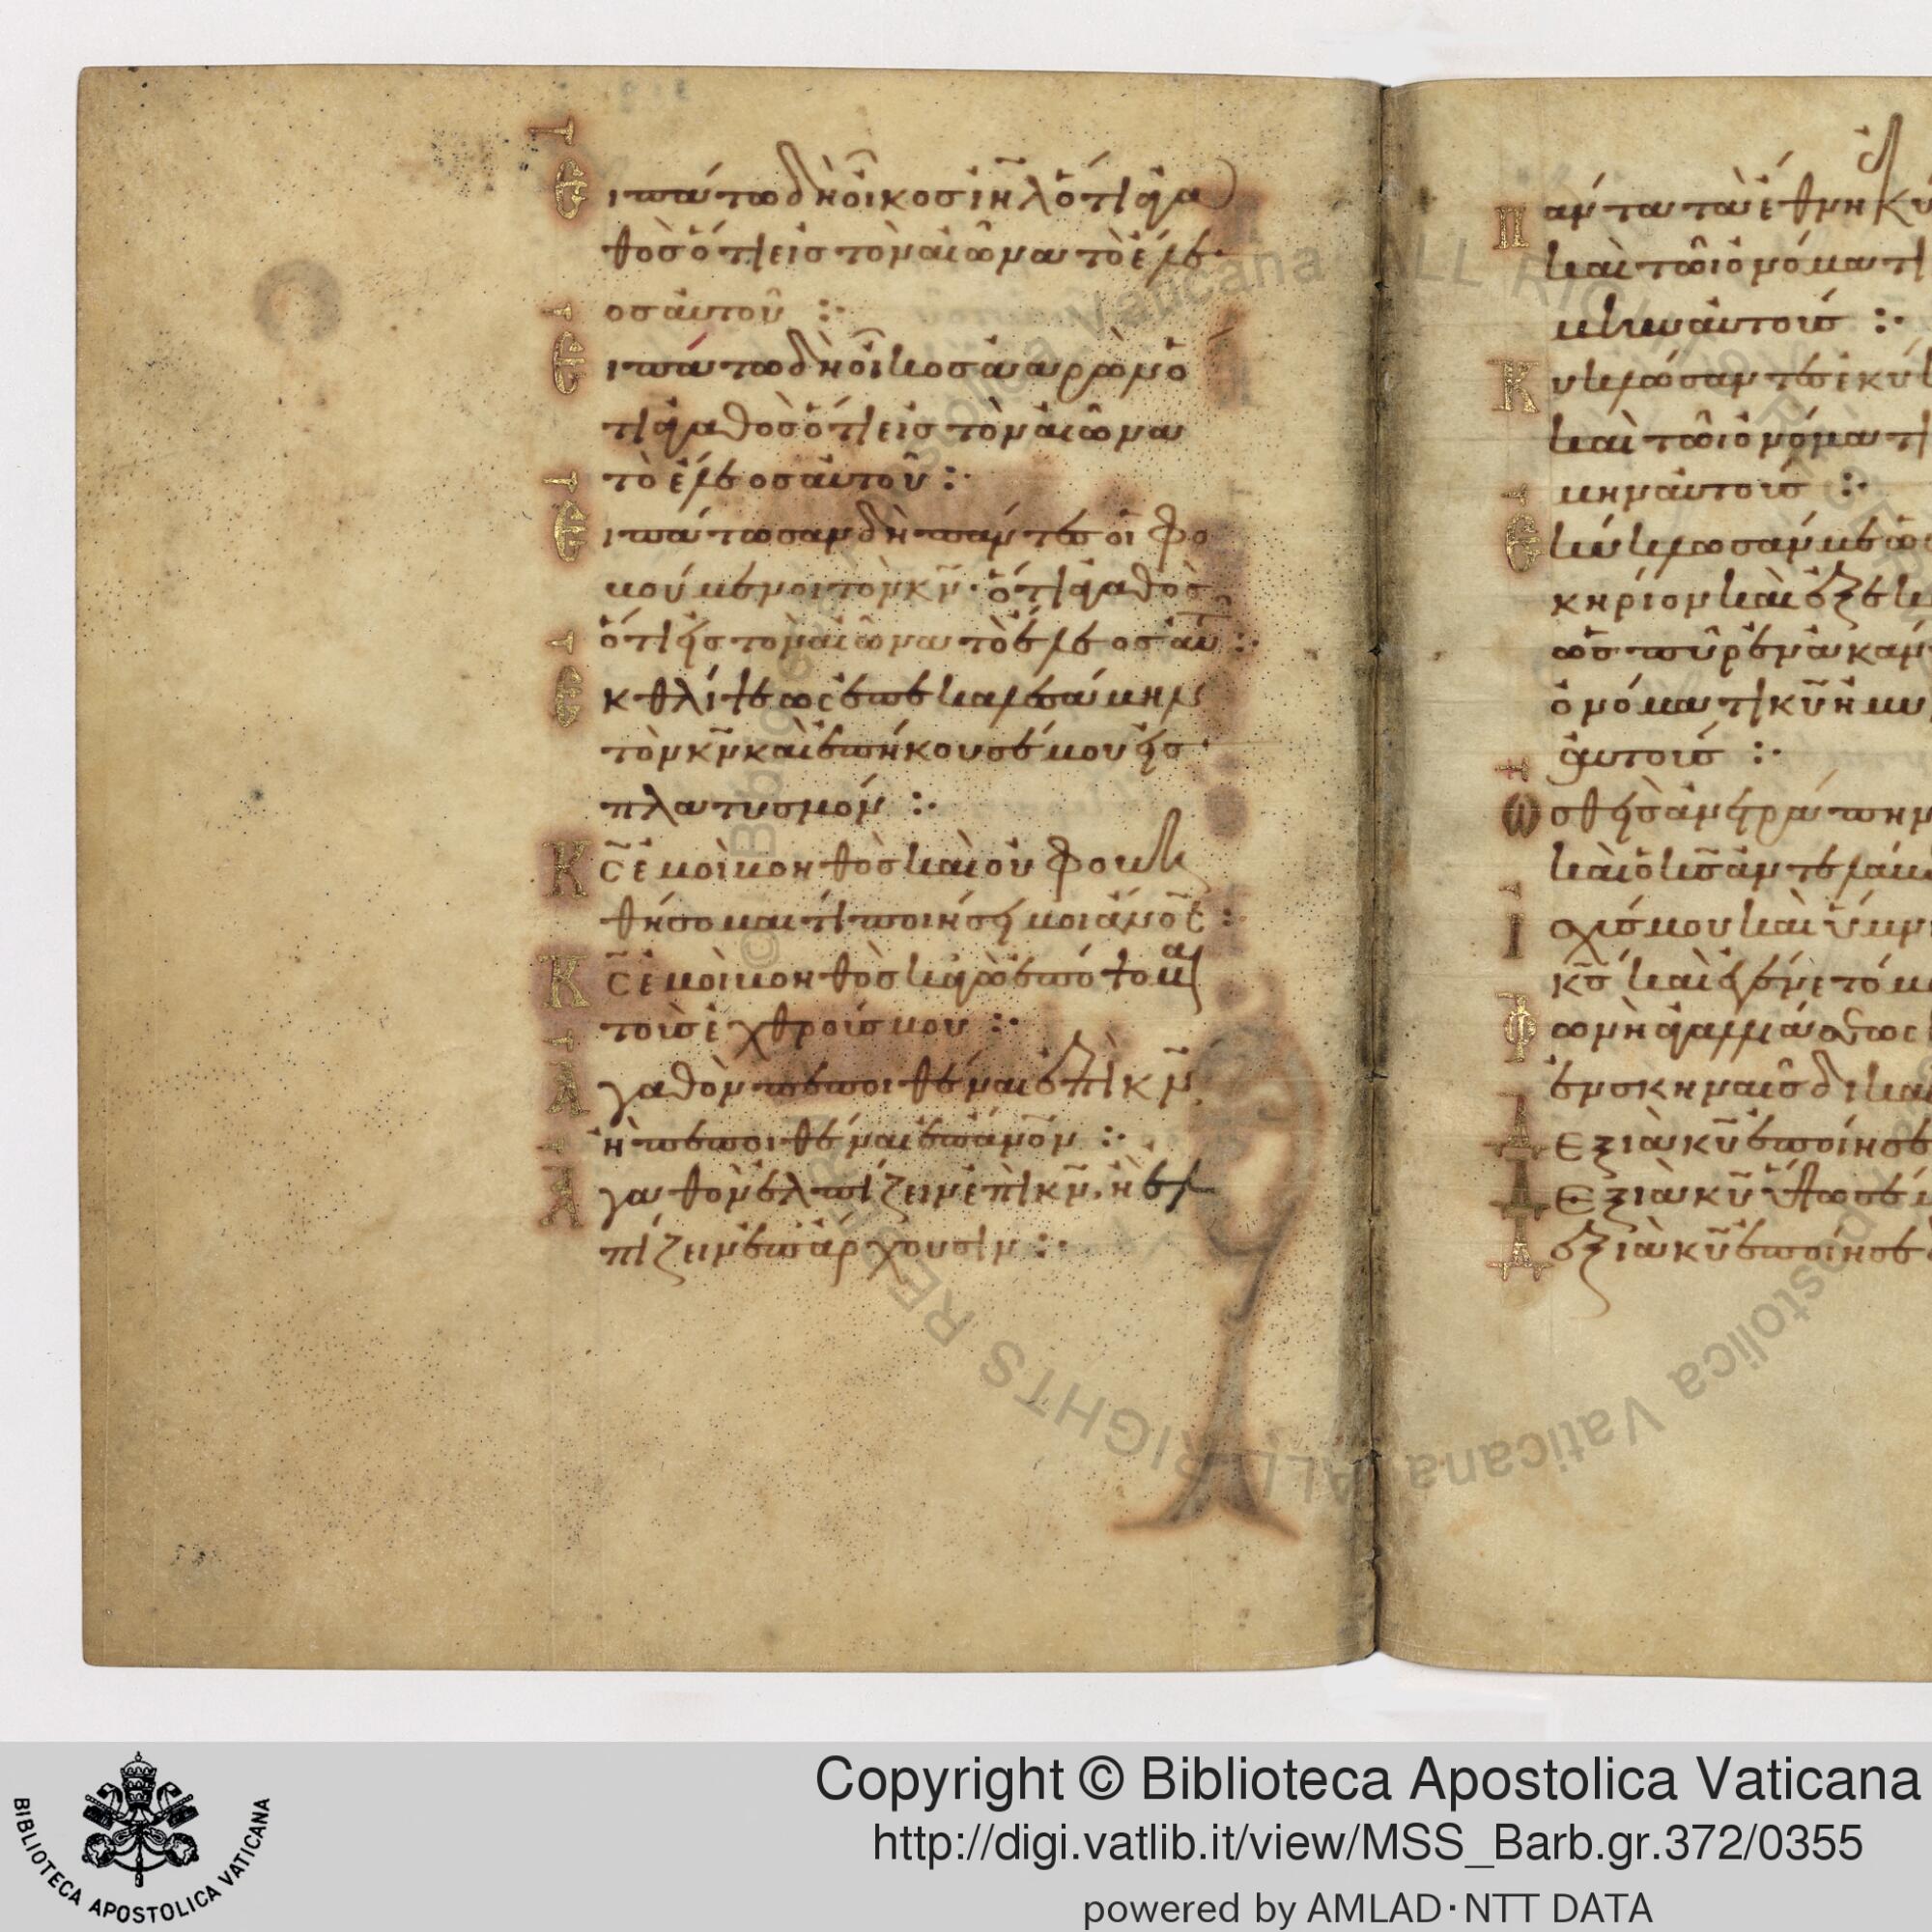 Εἰπάτω δὴ οἶκος ἰη̅λ ὅτι ἀγα
θὸς ὅτι εἰς τὸν αἰῶνα τὸ ἔλε
ος αὐτοῦ :·
Εἰπάτω δὴ οἶκος ἀαρὼν ὅ
τι ἀγαθὸς ὅτι εἰς τὸν αἰῶνα
τὸ ἔλεος αὐτοῦ :·
Εἰπάτωσαν δὴ πάντες οἱ φο
βούμενοι τὸν κν̅· ὅτι ἀγαθὸς
ὅτι εἰς τὸν αἰῶνα τὸ ἔλεος αὐτοῦ :·
Ἐκ θλίψεως ἐπεκαλεσάμην
τὸν κν̅ καὶ ἐπήκουσέ μου εἰς
πλατυσμόν :·
Κς̅ ἐμοὶ βοηθὸς καὶ οὐ φοβη
θήσομαι τί ποιήσει μοι ἄνος̅ :
Κς̅ ἐμοὶ βοηθὸς κἀγὼ ἐπόψομαι
τοῖς ἐχθροῖς μου :·
Ἀγαθὸν πεποιθέναι ἐπὶ κν̅
ἢ πεποιθέναι ἐπ' ἄνον̅ :·
Ἀγαθὸν ἐλπίζειν ἐπὶ κν̅, ἢ ἐλ
πίζειν ἐπ' ἄρχουσιν :·
Πάντα τὰ ἔθνη ἐκύ
καὶ τῶι ὀνόματι
μυναμην αὐτοὺς :·
Κυκλώσαντες ἐκύκ
καὶ τῶι ὀνόματι
μην αὐτοὺς :·
Ἐκύκλωσάν με ὡς
κηρίον καὶ ἐξεκ
ὡς πῦρ ἐν ἀκάν
ὀνόματι κυ̅ ἠμυ
αὐτοὺς :·
Ὠσθεὶς ἀνετράπην
καὶ ὁ κς̅ ἀντελάβ
Ἰσχύς μου καὶ ὕμν
κς̅ καὶ ἐγένετό μ
Φωνὴ ἀγαλλιάσεως
ἐν σκηναῖς δικαί
Δεξιὰ κυ̅ ἐποίησε
Δεξιὰ κυ̅ ὕψωσέ μ
Δεξιὰ κυ̅ ἐποίησε
Copyright © Biblioteca Apostolica Vaticana
http://digi.vatlib.it/view/MSS_Barb.gr.372/0355
powered by AMLAD·NTT DATA
BIBLIOTECA APOSTOLICA VATICANA